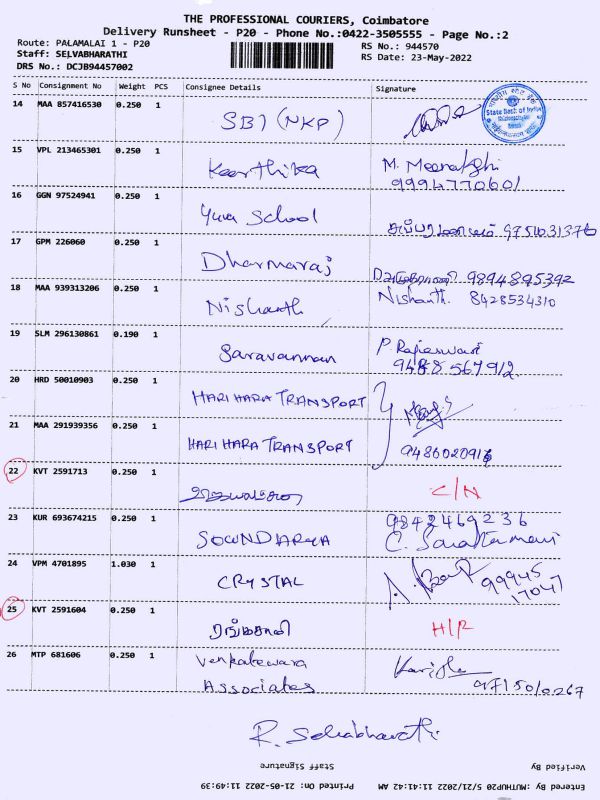 THE PROFESSIONAL COURIERS, Coimbatore
Delivery Runsheet - P20 - Phone No.:0422-3505555 - Page No.:2
Route: PALAMALAI 1 - P20
RS No.: 944570
Staff: SELVABHARATHI
RS Date: 23-May-2022
DRS No.: DCJB94457002
S No Consignment No Weight PCS Consignee Details Signature
14 MAA 857416530 0.250 1
SBI (NKP)
State Bank of India
15 VPL 213465301 0.250 1
Keerthika M. Meenakshi
9994770601
16 GGN 97524941 0.250 1
Yuva School
9751031376
17 GPM 226060 0.250 1
Dharmaraj
9894895392
18 MAA 939313206 0.250 1
Nishanth Nishanth. 8428534310
19 SLM 296130861 0.190 1
Saravannan P. Rajeswari
9488567912
20 HRD 50010903 0.250 1
HARI HARA TRANSPORT
21 MAA 291939356 0.250 1
HARI HARA TRANSPORT 9486020916
22 KVT 2591713 0.250 1
C/N
23 KUR 693674215 0.250 1
9842469236
SOUNDARYA
24 VPM 4701895 1.030 1
CRYSTAL 99945
17047
25 KVT 2591604 0.250 1
H/R
26 MTP 681606 0.250 1
Venkateswara
Associates
R. Selvabharathi
Staff Signature
Verified By
Entered By :MUTHUP20 5/21/2022 11:41:42 AM Printed On: 21-05-2022 11:49:39